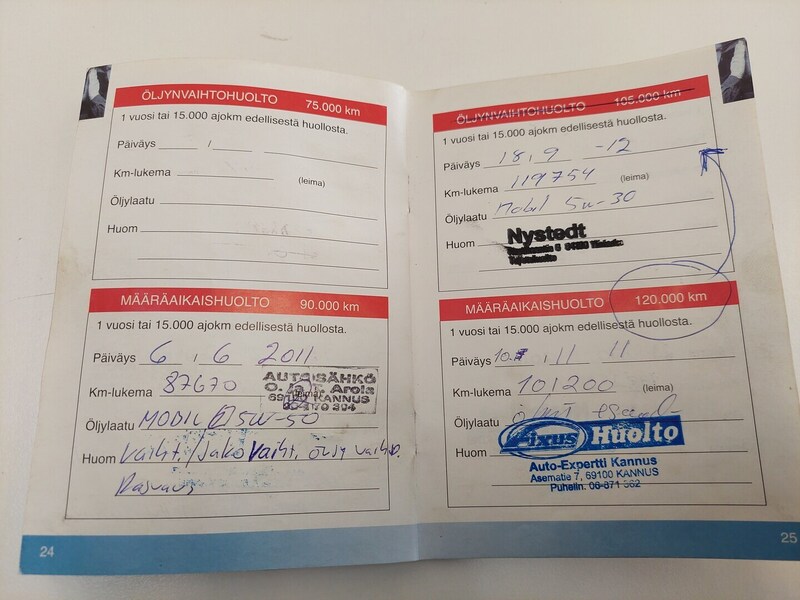 ÖLJYNVAIHTOHUOLTO 75.000 km
1 vuosi tai 15.000 ajokm edellisestä huollosta.
Päiväys
Km-lukema (leima)
Öljylaatu
Huom
MÄÄRÄAIKAISHUOLTO 90.000 km
1 vuosi tai 15.000 ajokm edellisestä huollosta.
Päiväys 6 . 6 2011
Km-lukema 87670
AUTOSÄHKÖ
Arola
KANNUS
Öljylaatu MOBIL 5W-50
Huom Vaiht./Jako Vaiht. öljy
24
ÖLJYNVAIHTOHUOLTO 105.000 km
1 vuosi tai 15.000 ajokm edellisestä huollosta.
Päiväys 18.9 -12
Km-lukema 119754 (leima)
Öljylaatu Mobil 5w-30
Huom Nystedt
MÄÄRÄAIKAISHUOLTO 120.000 km
1 vuosi tai 15.000 ajokm edellisestä huollosta.
Päiväys 10. 11 11
Km-lukema 101200 (leima)
Öljylaatu
Fixus Huolto
Huom
Auto-Expertti Kannus
Asematie 7, 69100 KANNUS
Puhelin. 06-871
25